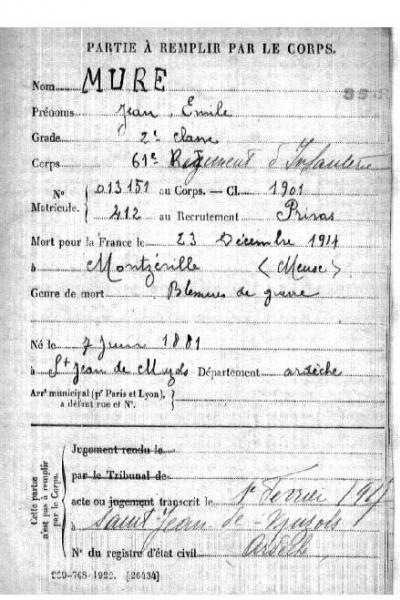 PARTIE À REMPLIR PAR LE CORPS.
Nom MURE
Prénoms Jean, Emile
Grade 2e classe
Corps 61e Régiment d'Infanterie
N° 013151 au Corps. — Cl. 1901
Matricule. 412 au Recrutement Privas
Mort pour la France le 23 Décembre 1914
à Montzéville (Meuse)
Genre de mort Blessures de guerre
Né le 7 Juin 1881
à St Jean de Muzols Département ardèche
Arrt municipal (pr Paris et Lyon), à défaut rue et N°.
Cette partie n'est pas à remplir par le Corps.
Jugement rendu le
par le Tribunal de
acte ou jugement transcrit le 1er Février
à Saint Jean de Muzols
N° du registre d'état civil Ardèche
[26434]